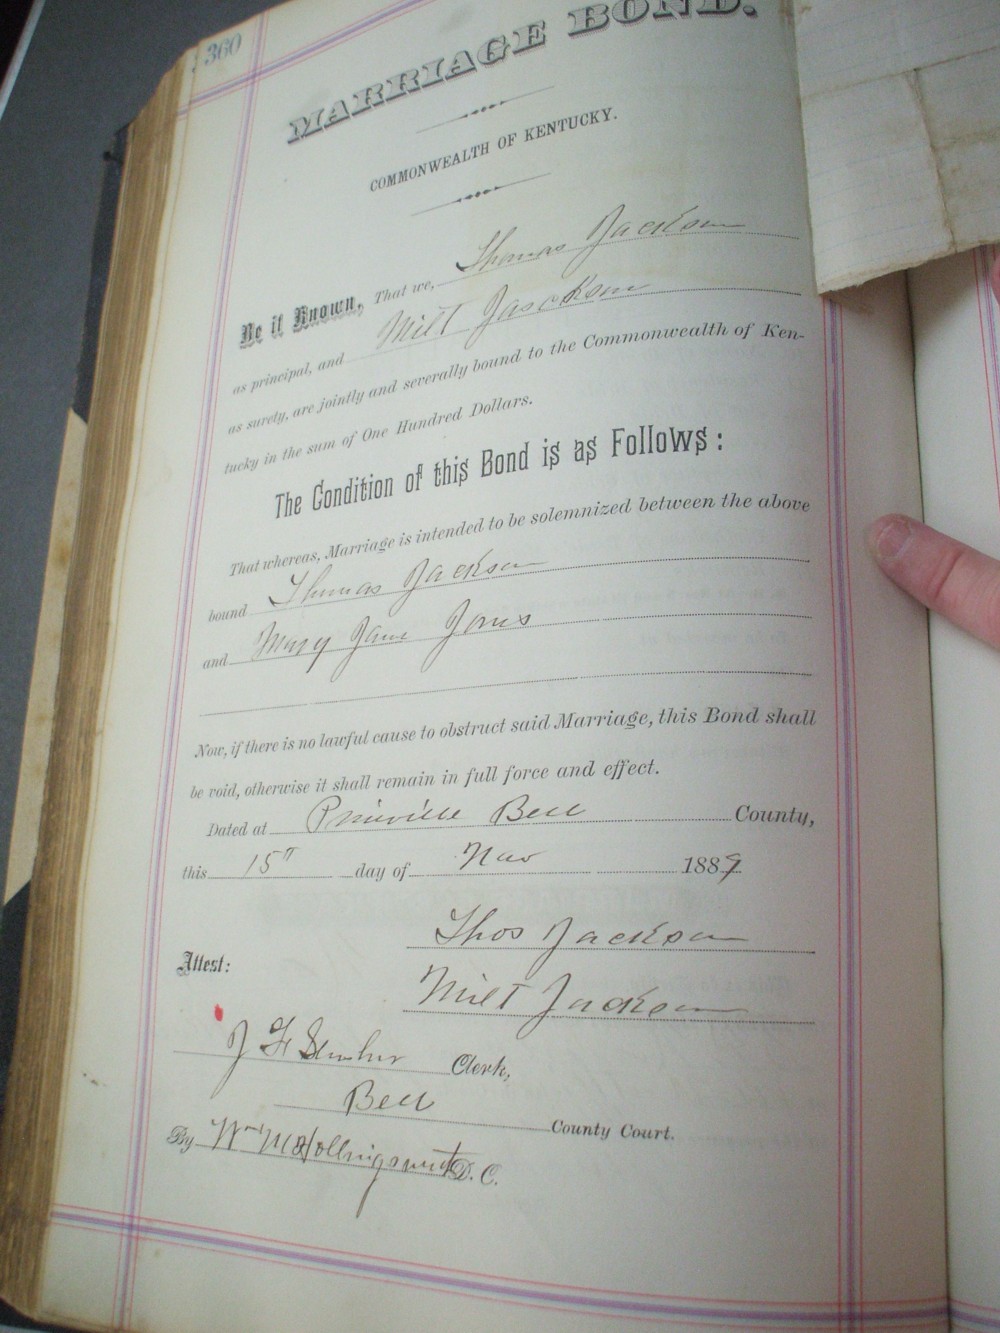 360
MARRIAGE BOND.
COMMONWEALTH OF KENTUCKY.
Be it Known, That we, Thomas Jackson
as principal, and Milt Jasckson
as surety, are jointly and severally bound to the Commonwealth of Ken-
tucky in the sum of One Hundred Dollars.
The Condition of this Bond is as Follows:
That whereas, Marriage is intended to be solemnized between the above
bound Thomas Jackson
and Mary Jane Jones
Now, if there is no lawful cause to obstruct said Marriage, this Bond shall
be void, otherwise it shall remain in full force and effect.
Dated at Pineville Bell County,
this 15th day of Nov 1889
Thos Jackson
Attest:
Milt Jackson
J F Clerk,
Bell County Court.
By Wm M Hollingsworth D. C.